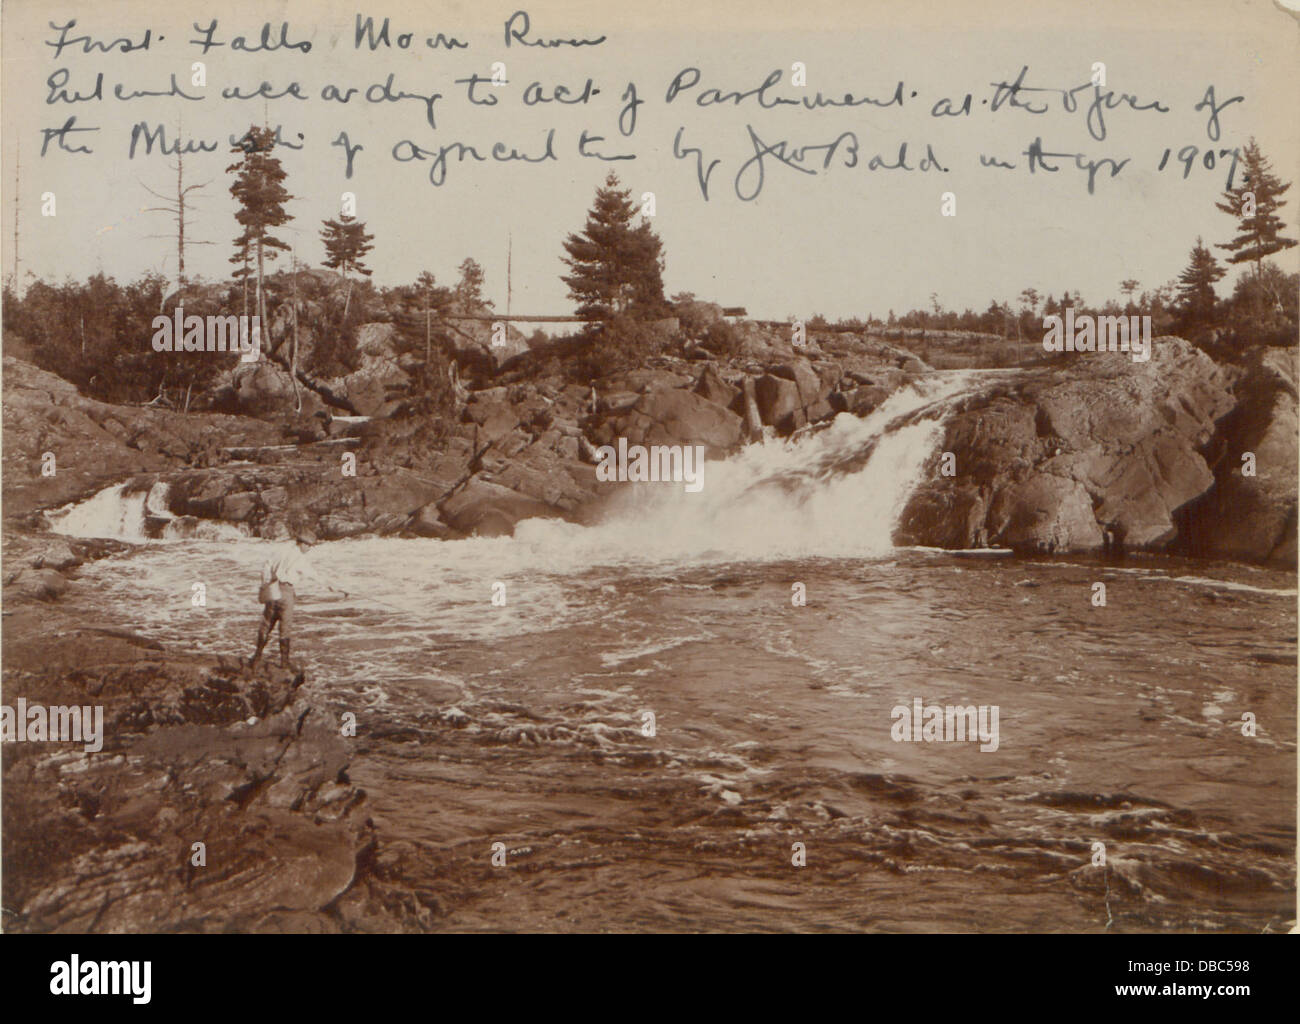 First Falls Moon River
Entered according to act of Parliament at the Office of
the Minister of agriculture by J W Bald in the yr 1907
alamy
alamy
alamy
alamy
alamy
a
a
a
alamy
Image ID: DBC598
www.alamy.com